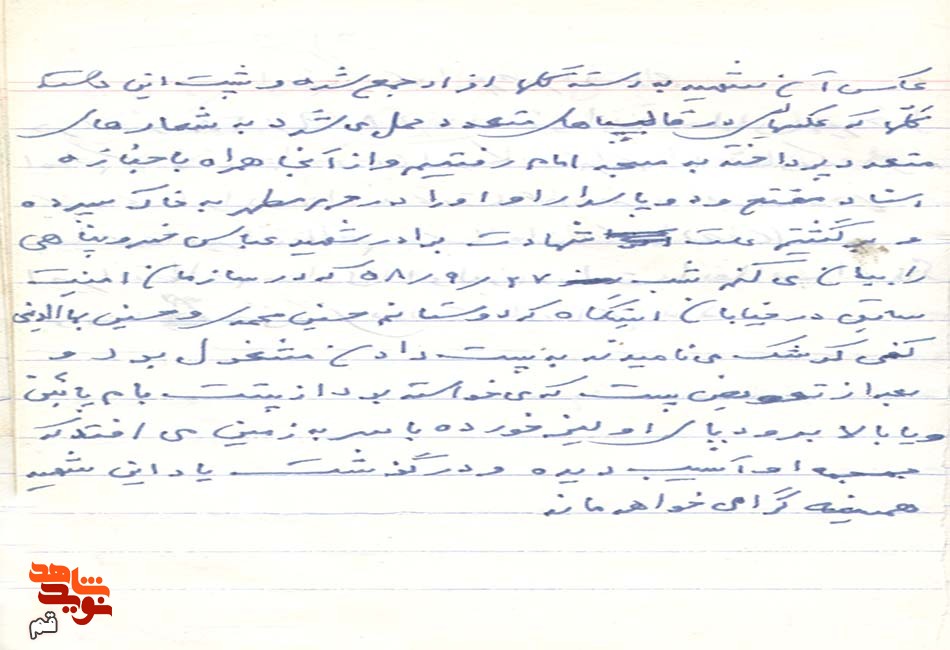 عکس آن شهید به دسته گلها افراد جمع شده و ثبت این دسته
گلها که عکسهای در قالبهای متعدد حمل می شد به شمارهای
متعدد پرداخته به مسجد امام رفتیم و از آنجا همراه با جنازه
استاد مفتح و دو پاسدار او او را در حرم مطهر به خاک سپرده
و برگشتیم علت شهادت برادر شهید عباس خسروپناهی
را بیان می کنم شب ۵۸/۹/۲۷ که در سازمان امنیت
سابق در خیابان که دوستانم حسین محمدی و حسین بهاالدینی
کفی کوشک می نامیدند به پست دادن مشغول بود و
بعد از تعویض پست که می خواسته بود از پشت بام پائین
و یا بالا برود پای او لیز خورده با سر به زمین می افتد که
او آسیب دیده و درگذشت یاد این شهید
همیشه گرامی خواهد ماند
نوید شاهد
قم